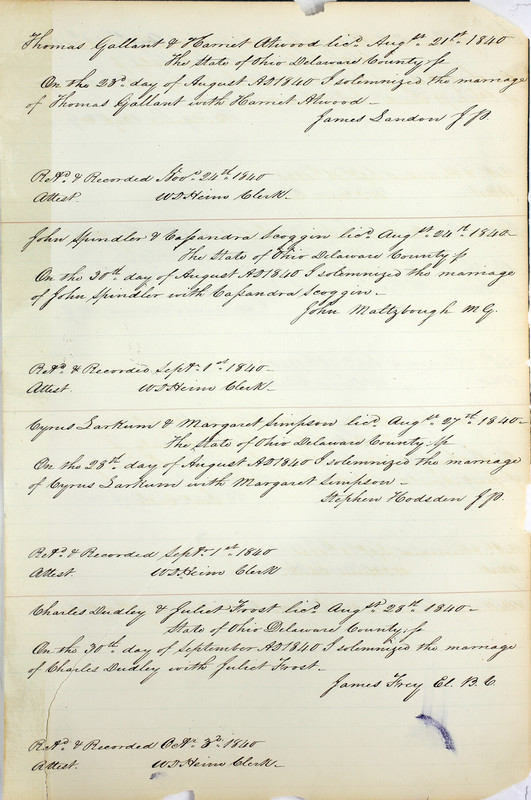 Thomas Gallant & Harriet Atwood licd. Augst. 21st. 1840
The State of Ohio Delaware County ss
On the 23d. day of August AD 1840 I solemnized the marriage
of Thomas Gallant with Harriet Atwood –
James Landon J P.
Retd. & Recorded Novr. 24th. 1840
Attest. W D Heim Clerk –
John Spindler & Cassandra Scoggin licd. Augst. 24th. 1840 –
The State of Ohio Delaware County ss
On the 30th. day of August AD 1840 I solemnized the marriage
of John Spindler with Cassandra Scoggin –
John Maltzbough M G.
Retd. & Recorded Septr. 1st. 1840 –
Attest. W D Heim Clerk –
Cyrus Larkum & Margaret Simpson licd. Augst. 27th. 1840 –
The State of Ohio Delaware County ss
On the 28th. day of August AD 1840 I solemnized the marriage
of Cyrus Larkum with Margaret Simpson –
Stephen Hodsden J P.
Retd. & Recorded Septr. 1st. 1840
Attest. W D Heim Clerk
Charles Dudley & Juliet Frost licd. Augst. 28th. 1840 –
State of Ohio Delaware County ss
On the 30th. day of September AD 1840 I solemnized the marriage
of Charles Dudley with Juliet Frost –
James Frey El. B. C
Retd. & Recorded Octr. 3d. 1840
Attest. W D Heim Clerk –